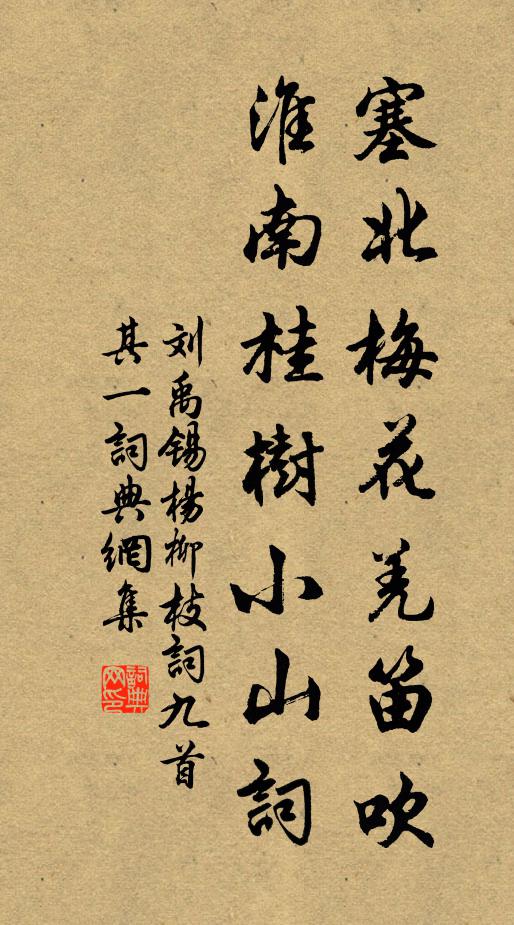 塞北梅花羌笛吹
淮南桂樹小山詞
刘禹锡楊柳枝詞九首
其一詞典網集
詞典
网印